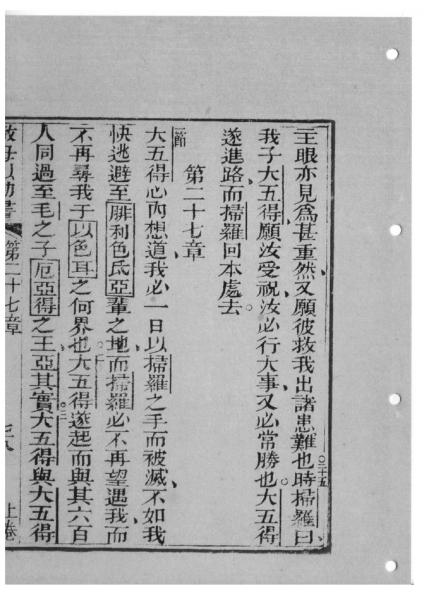 主眼亦見爲甚重然又願彼救我出諸患難也。二十五時掃羅曰、
我子大五得願汝受祝、汝必行大事、又必常勝也。大五得
遂進路、而掃羅回本處去。
第二十七章
一節大五得心內想道、我必一日以掃羅之手而被滅、不如我
快逃避至腓利色氐亞輩之地、而掃羅必不再望遇我、而
不再尋我于以色耳之何界也。大五得遂起而與其六百
人同過至毛之子厄亞得之王亞其實。三大五得與大五得
第二十七章 上卷